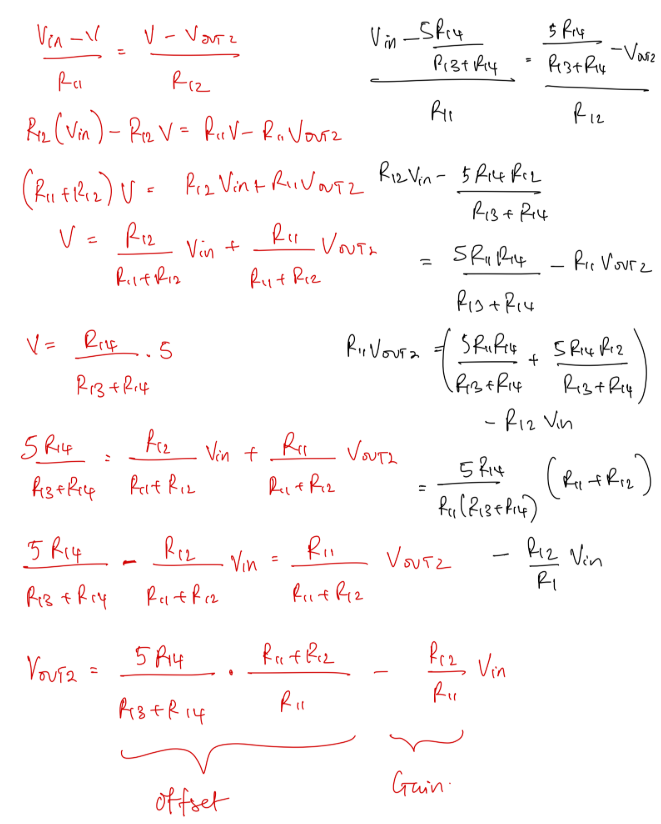 (Vin - V)/R11 = (V - VOUT2)/R12
R12(Vin) - R12 V = R11 V - R11 VOUT2
(R11 + R12) V = R12 Vin + R11 VOUT2
V = R12/(R11 + R12) Vin + R11/(R11 + R12) VOUT2
V = R14/(R13 + R14) . 5
5R14/(R13 + R14) = R12/(R11 + R12) Vin + R11/(R11 + R12) VOUT2
5R14/(R13 + R14) - R12/(R11 + R12) Vin = R11/(R11 + R12) VOUT2
VOUT2 = 5R14/(R13 + R14) . (R11 + R12)/R11 - R12/R11 Vin
offset
Gain.
(Vin - 5R14/(R13 + R14))/R11 = (5R14/(R13 + R14) - VOUT2)/R12
R12 Vin - 5R14 R12/(R13 + R14)
= 5R11 R14/(R13 + R14) - R11 VOUT2
R11 VOUT2 = (5R11R14/(R13 + R14) + 5R14 R12/(R13 + R14))
- R12 Vin
= 5R14/(R11(R13 + R14)) (R11 + R12)
- R12/R1 Vin